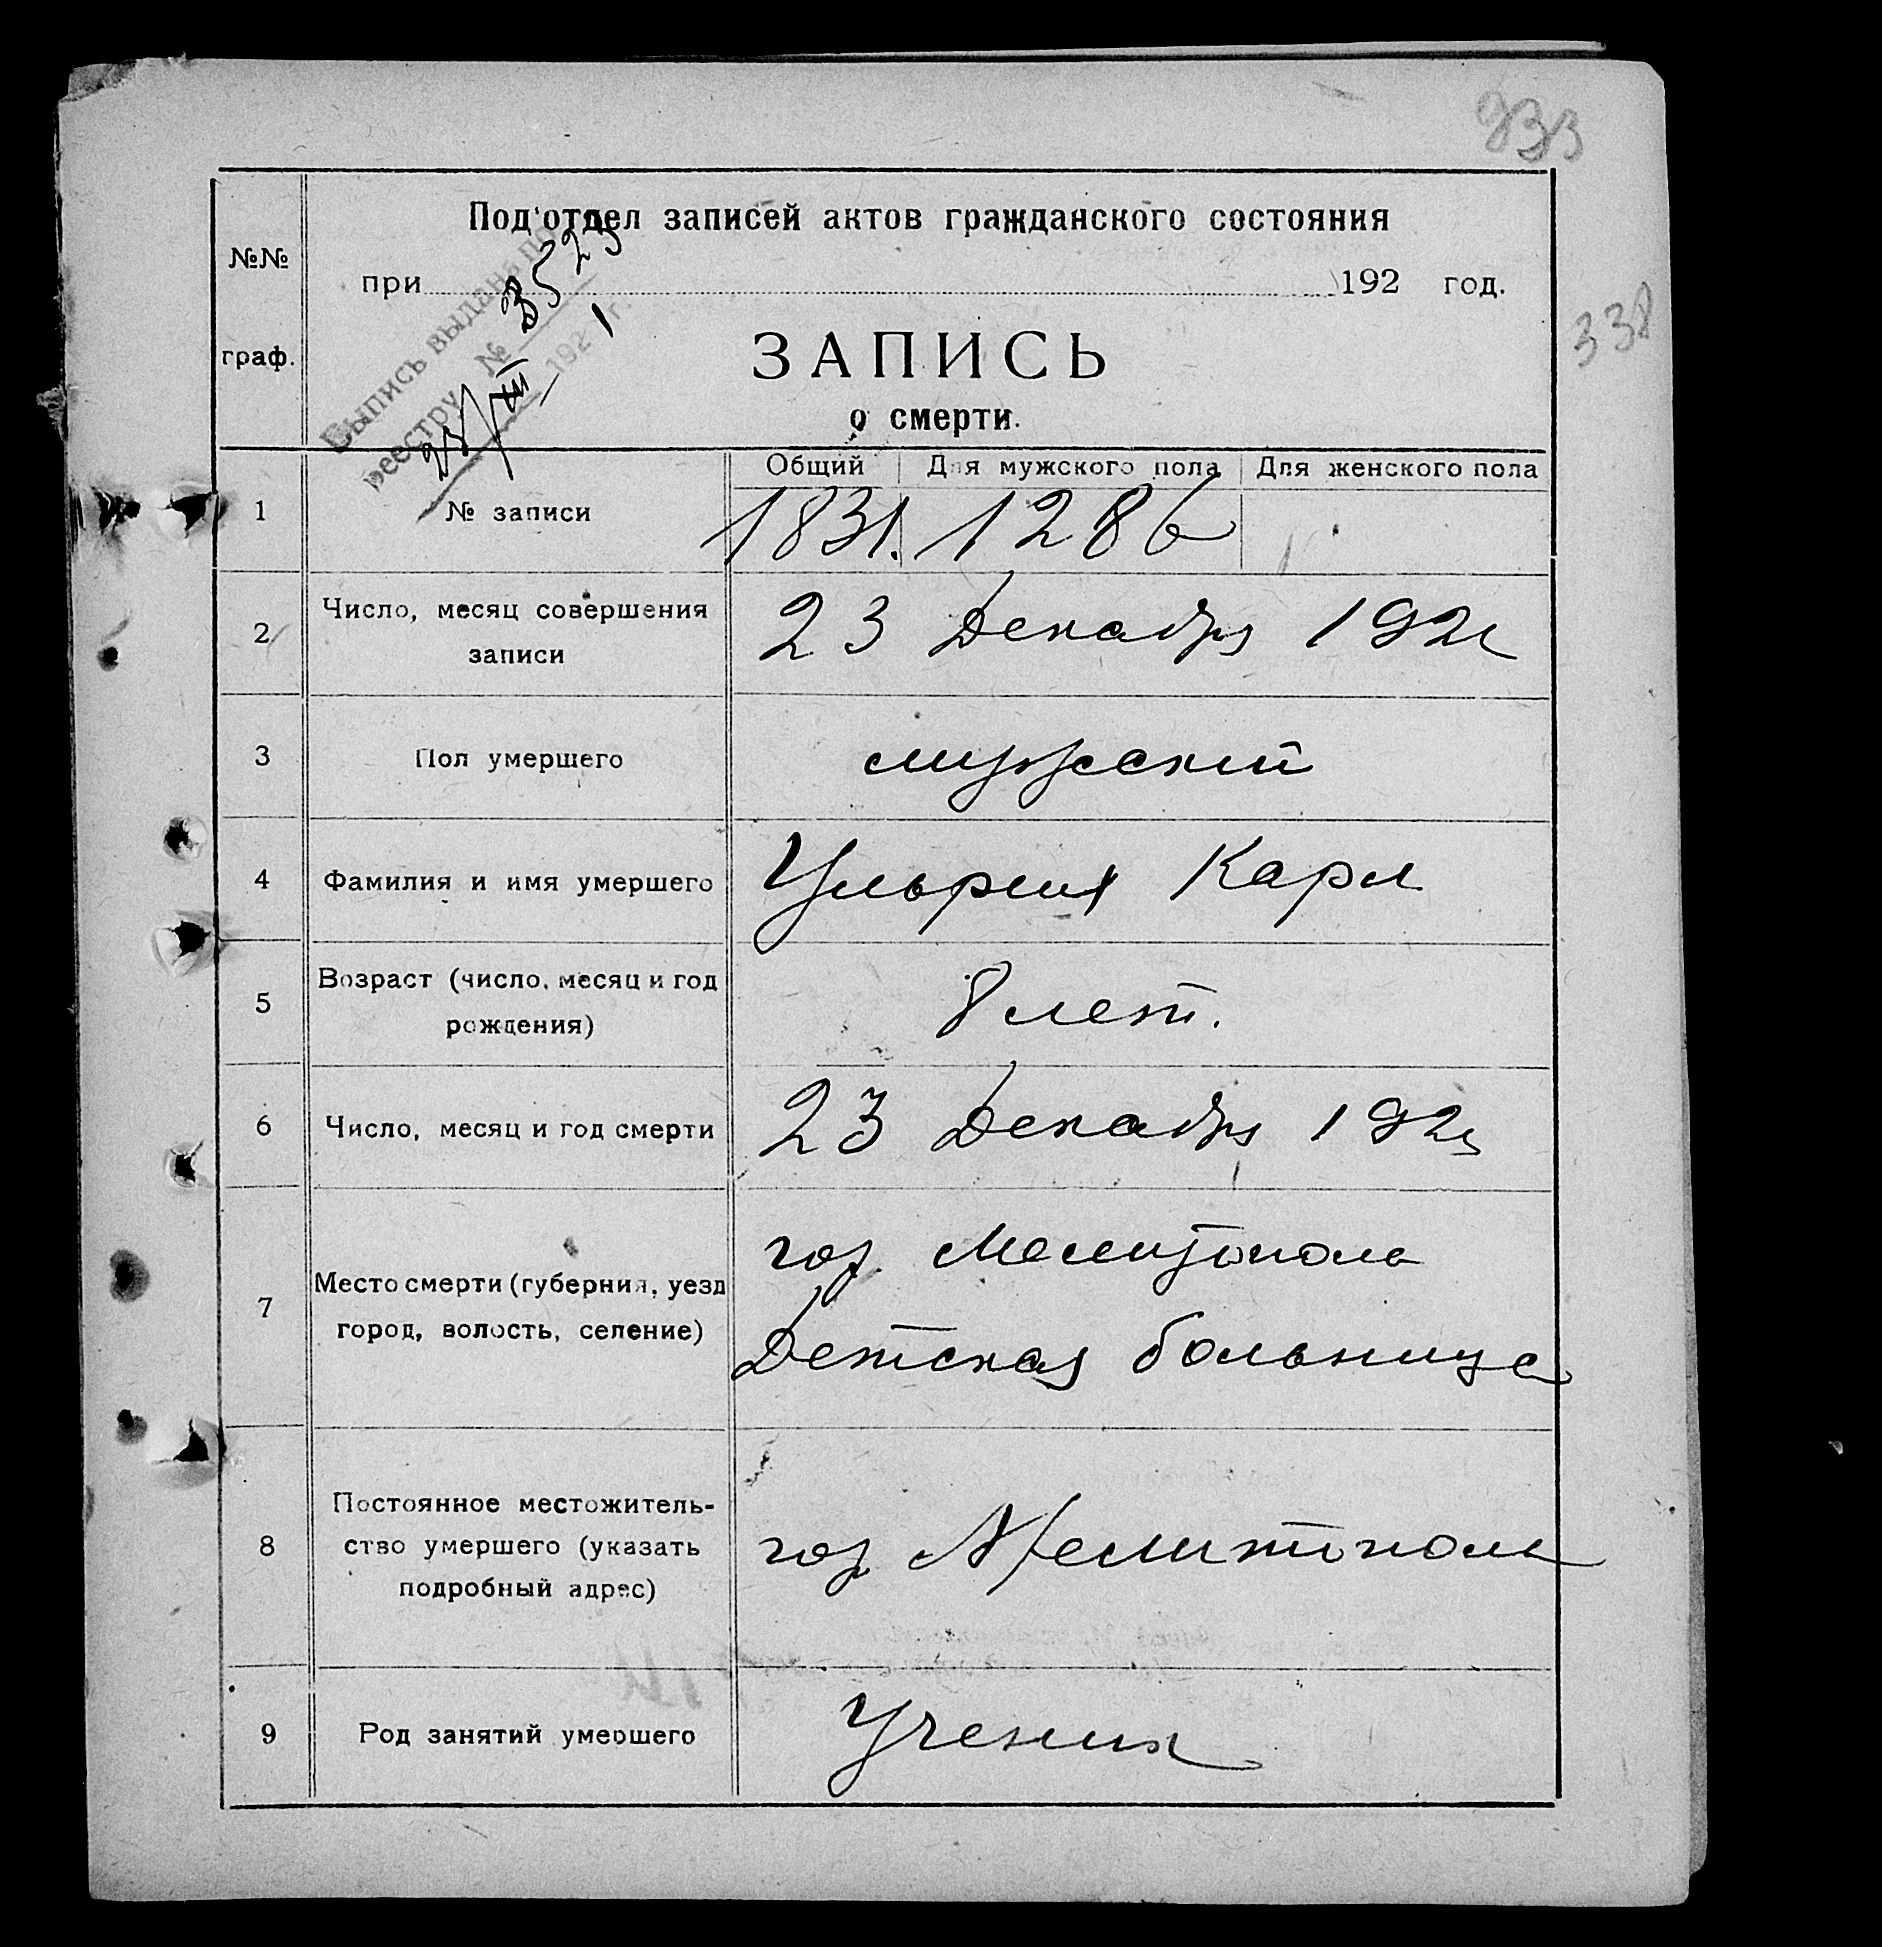 333
338
Под'отдел записей актов гражданского состояния
№№
граф.
при 192 год.
Выпись выдана по
реестру № 3523
23/XII 1921 г.
ЗАПИСЬ
о смерти.
Общий Для мужского пола Для женского пола
1 № записи 1831. 1286
2 Число, месяц совершения
записи
23 Декабря 1921
3 Пол умершего мужской
4 Фамилия и имя умершего Ульрих Карл
5 Возраст (число, месяц и год
рождения)
8 лет.
6 Число, месяц и год смерти 23 Декабря 1921
7 Место смерти (губерния, уезд
город, волость, селение)
гор. Мелитополь
Детская больница
8 Постоянное местожитель-
ство умершего (указать
подробный адрес)
гор Мелитополь
9 Род занятий умершего Ученик